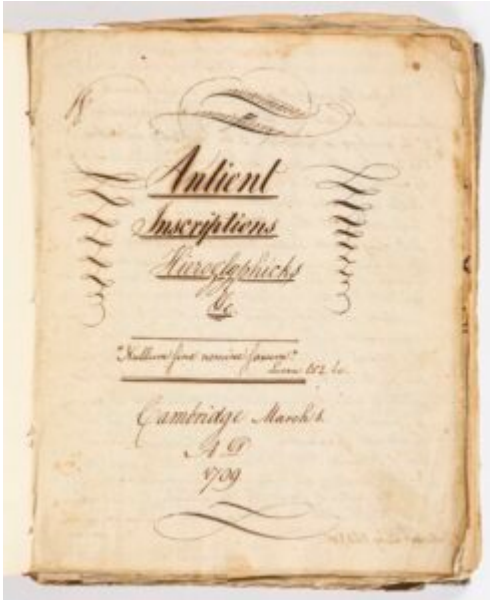 Antient
Inscriptions
Hieroglyphicks
&c.
"Nullum sine nomine saxum"
Lucan
Cambridge March
A D
1709